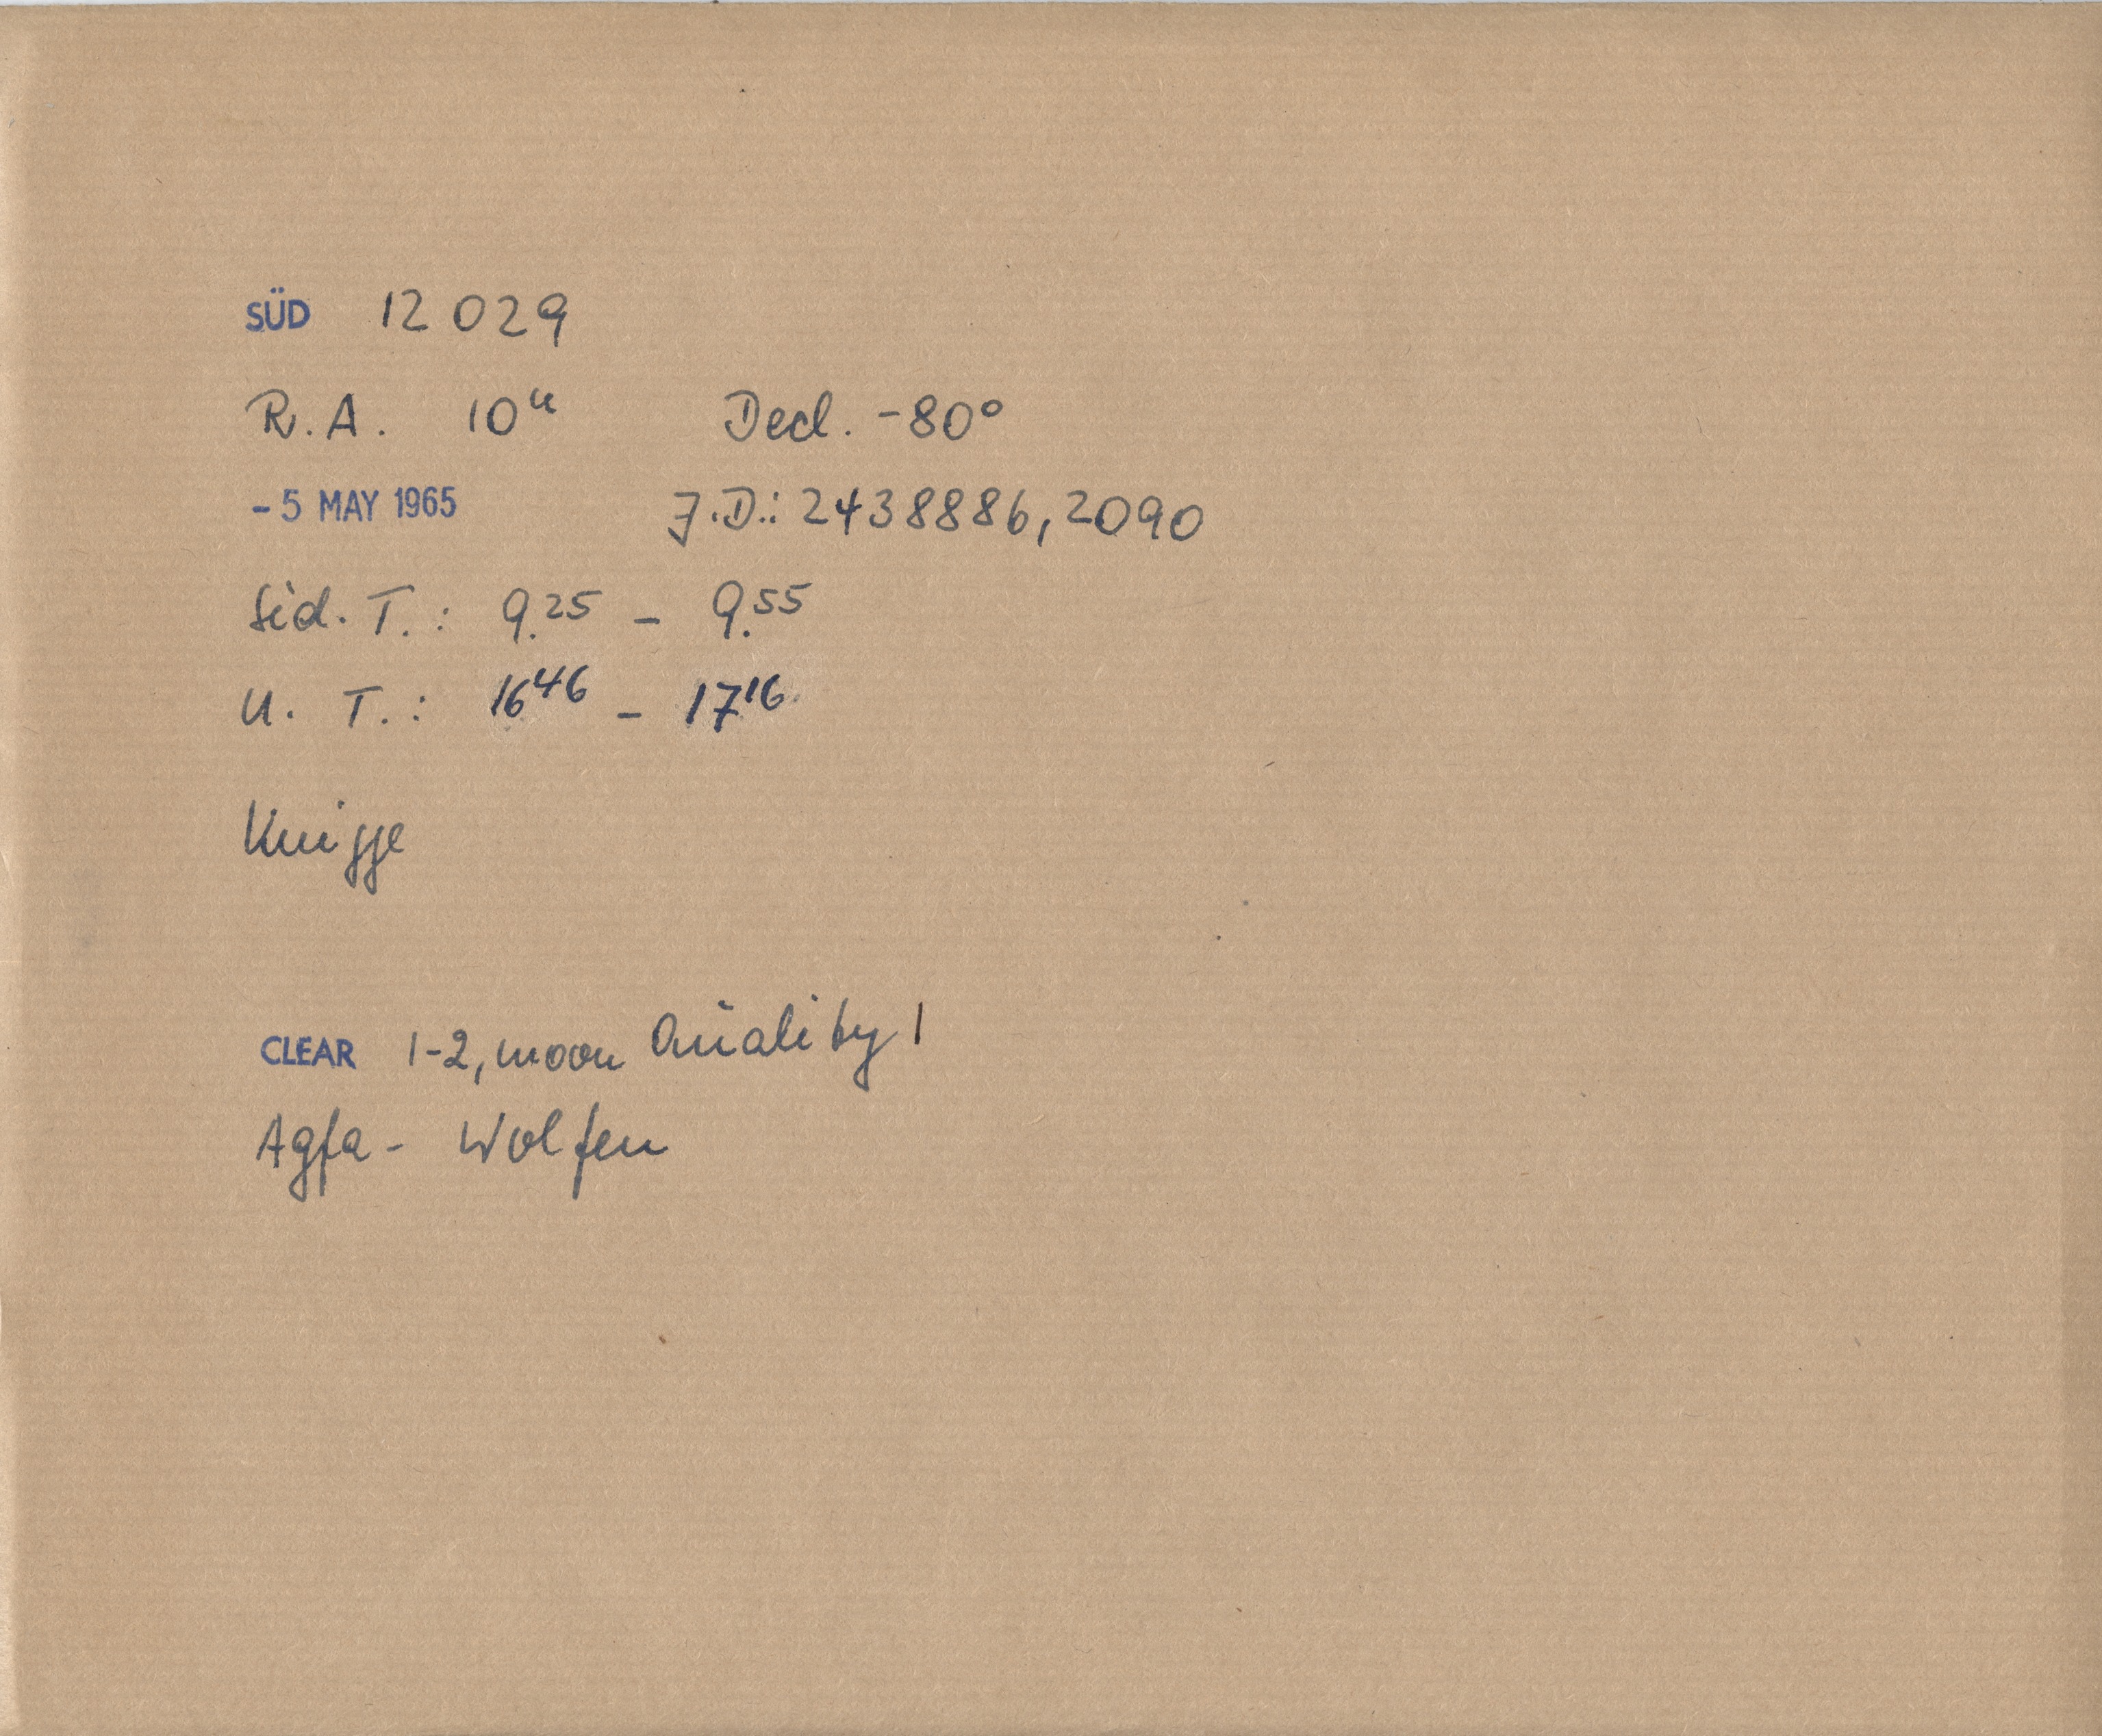 SÜD 12029
R.A. 10ʰ Decl. -80°
-5 MAY 1965 J.D.: 2438886,2090
Sid. T.: 9.25 - 9.55
U. T.: 16⁴⁶ - 17¹⁶
Knigge
CLEAR 1-2, moon Quality 1
Agfa - Wolfen